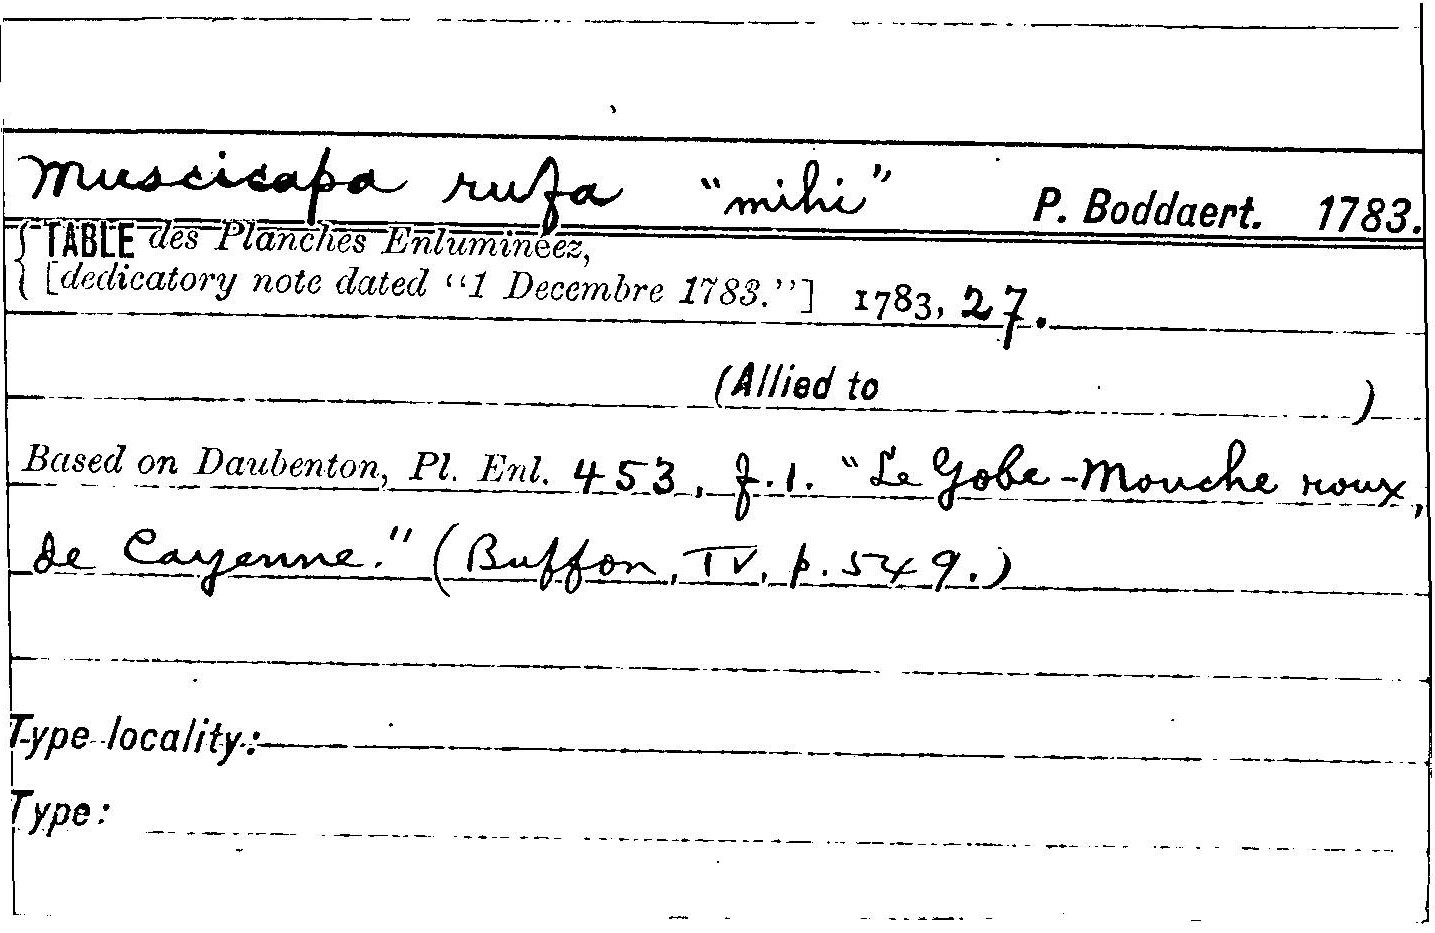 Muscicapa rufa "mihi" P. Boddaert. 1783.
TABLE des Planches Enlumineéz,
[dedicatory note dated "1 Decembre 1783."] 1783, 27.
(Allied to )
Based on Daubenton, Pl. Enl. 453, f.1. "Le Gobe-Mouche roux,
de Cayenne." (Buffon, IV, p. 549.)
Type locality:
Type: